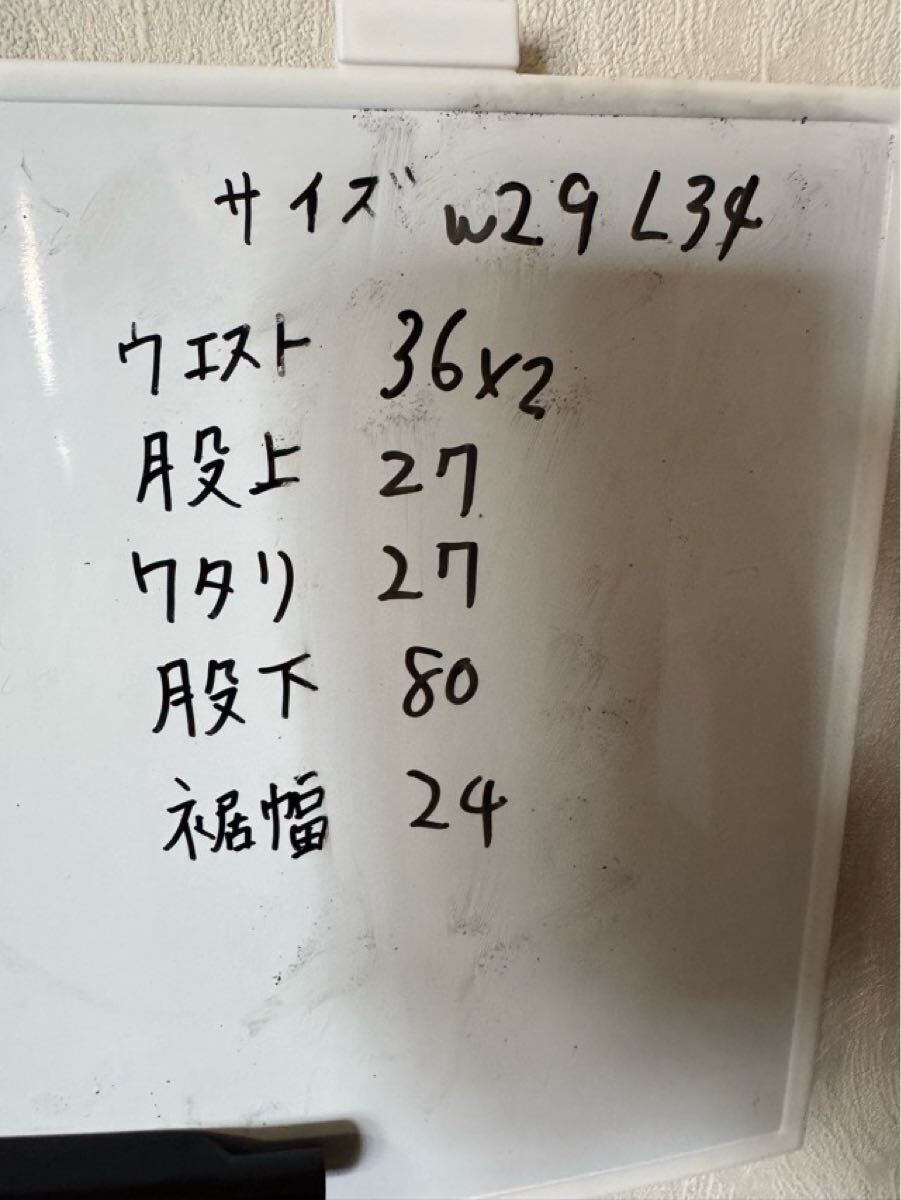 サイズ w29 L34
ウエスト 36×2
股上 27
ワタリ 27
股下 80
裾幅 24